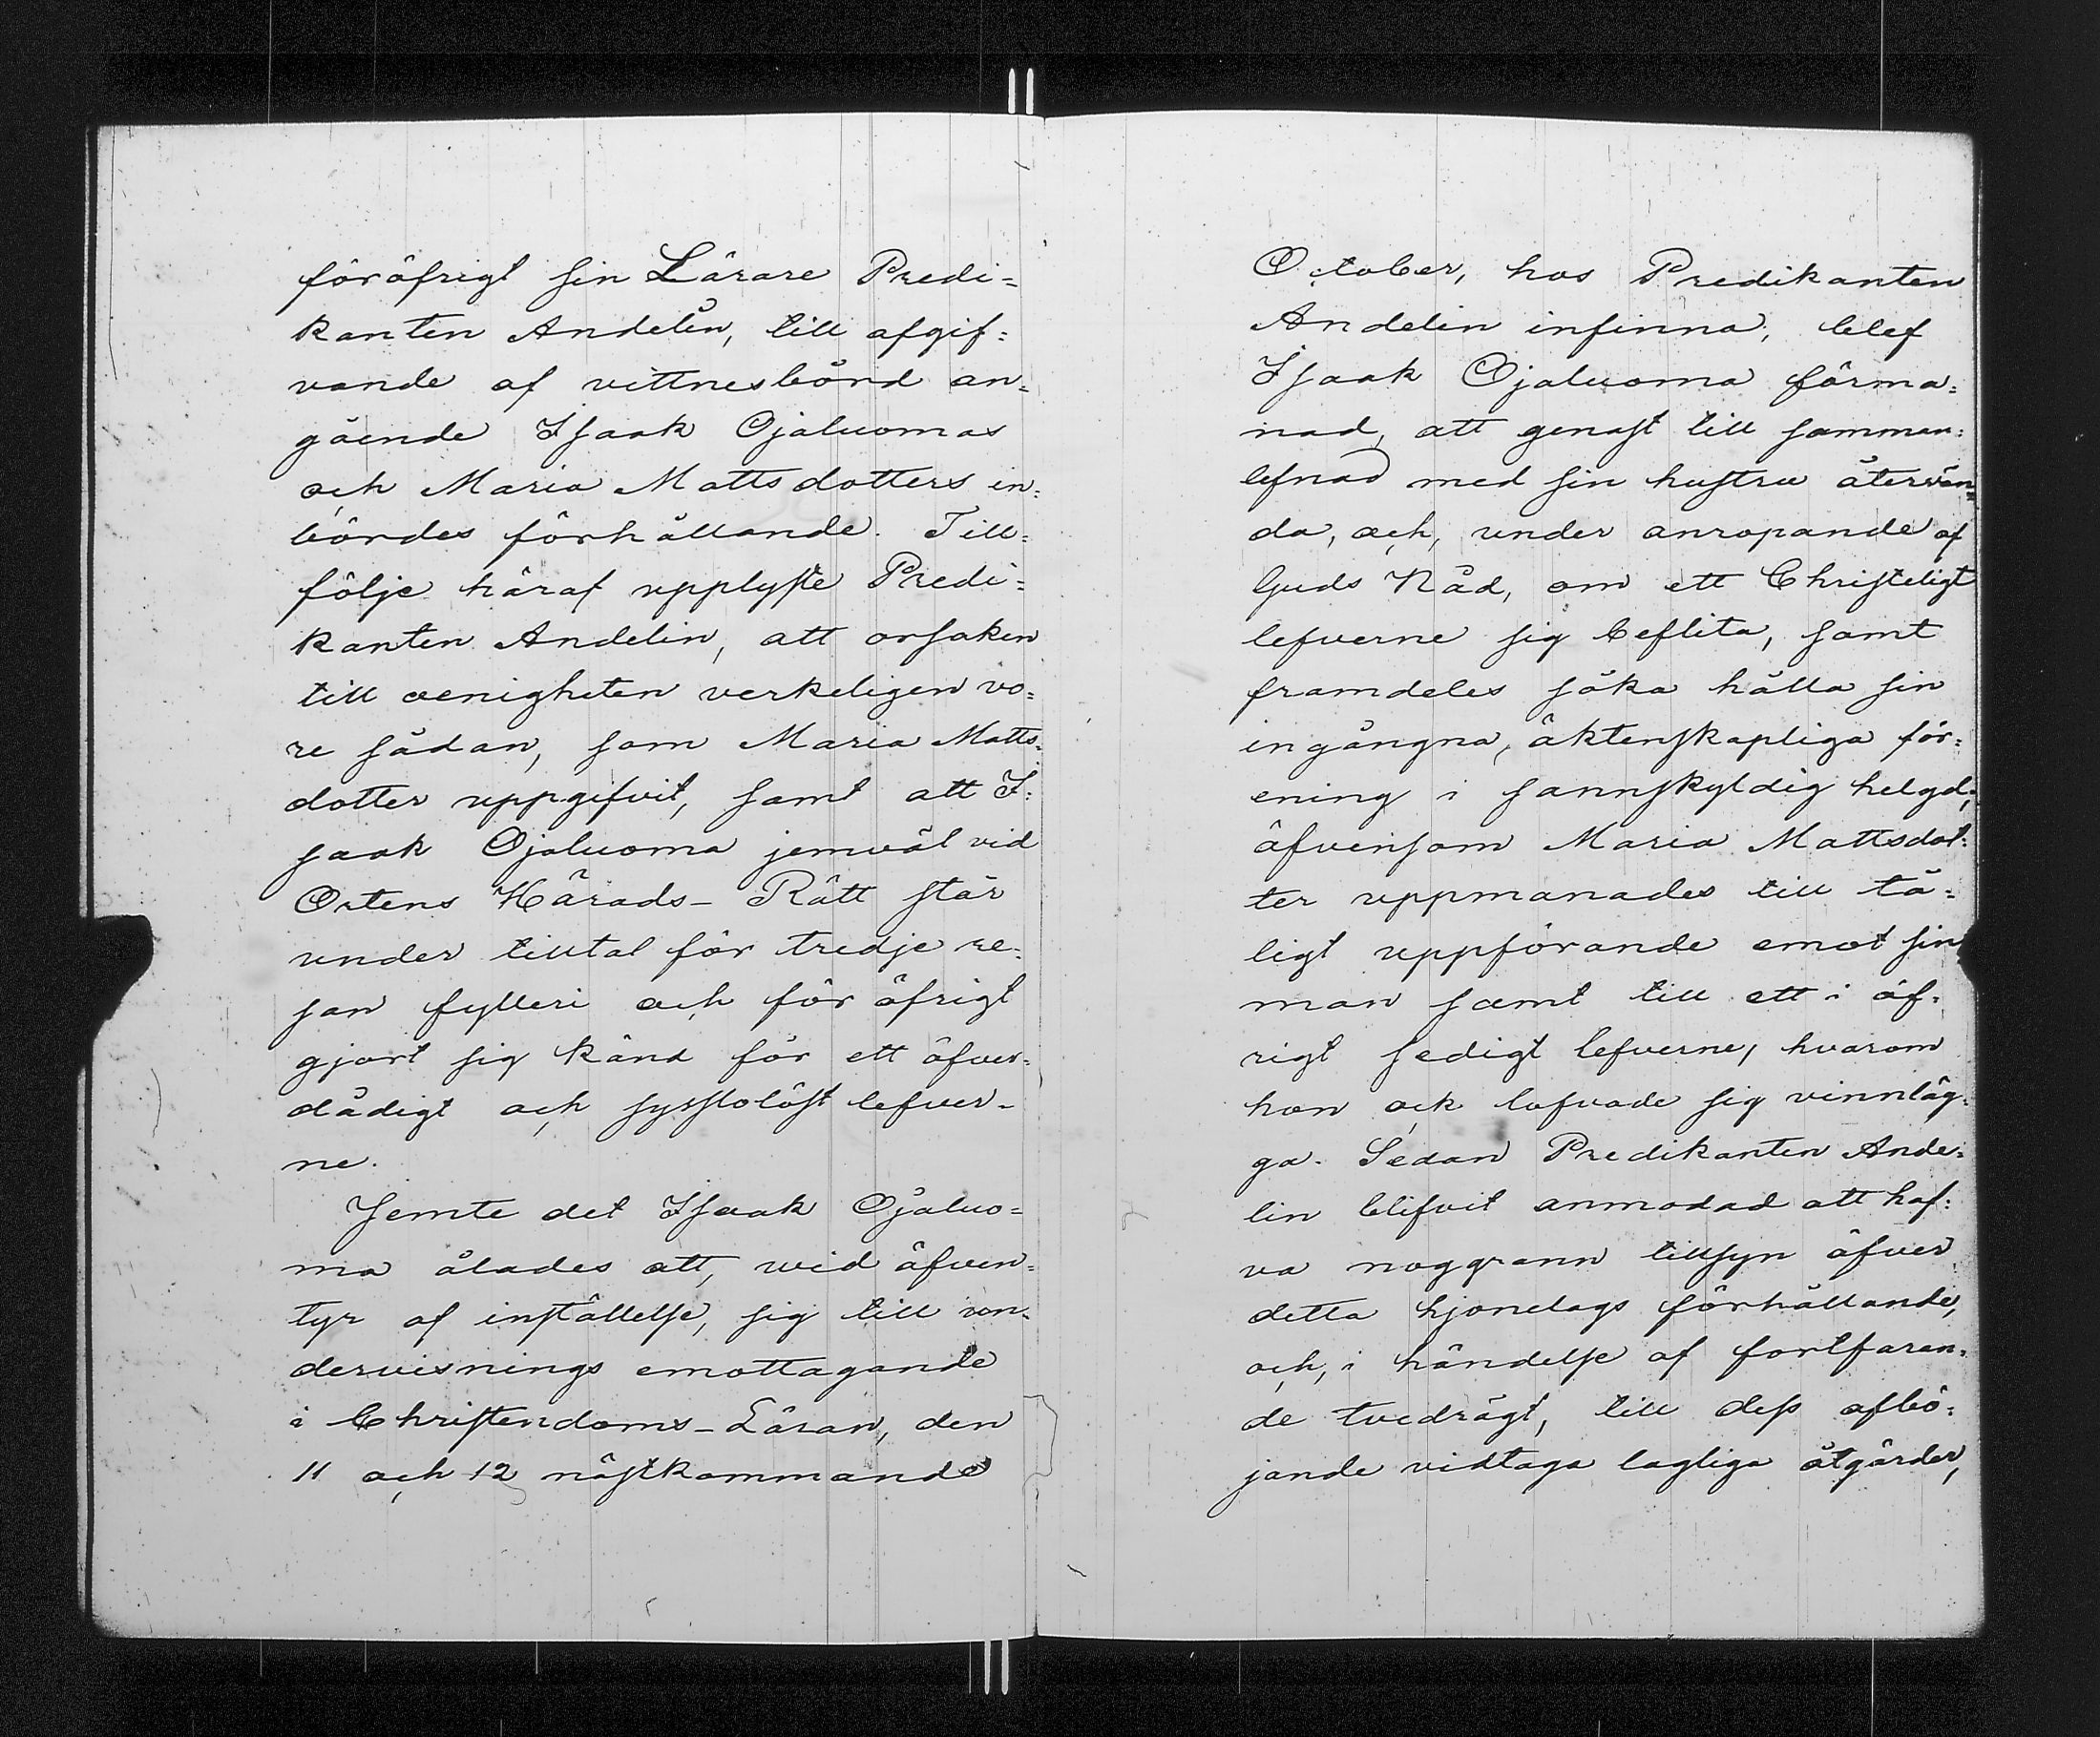 föröfrigt sin Lärare Predi=
kanten Andelin, till afgif=
vande af vittnesbörd an=
gående Isaak Ojaluomas
och Maria Mattsdotters in=
bördes förhållande. Till=
följe häraf upplyste Predi=
kanten Andelin, att orsaken
till oenigheten verkeligen vo=
re sådan, som Maria Matts=
dotter uppgifvit, samt att I=
saak Ojaluoma jemväl vid
Ortens Härads-Rätt står
under tilltal för tredje re=
san fylleri och för öfrigt
gjort sig känd för ett öfver=
dådigt och sysslolöst lefver-
ne.
Jemte det Isaak Ojaluo=
ma ålades att, wid äfven=
tyr af inställelse, sig till un=
dervisnings emottagande
i Christendoms-Läran, den
11 och 12 nästkommande
October, hos Predikanten
Andelin infinna, blef
Isaak Ojaluoma förma=
nad, att genast till samman=
lefnad med sin hustru återvän=
da, och, under anropande af
Guds Nåd, om ett Christeligt
lefverne sig beflita, samt
framdeles söka hålla sin
ingångna, äktenskapliga för=
ening i sannskyldig helgd;
äfvensom Maria Mattsdot=
ter uppmanades till tå=
ligt uppförande emot sin
man samt till ett i öf=
rigt sedigt lefverne, hvarom
hon ock lofvade sig vinnläg=
ga. Sedan Predikanten Ande=
lin blifvit anmodad att haf=
va noggrann tillsyn öfver
detta hjonelags förhållande,
och, i händelse af fortfaran=
de tvedrägt, till dess afbö=
jande vidtaga lagliga åtgärder,